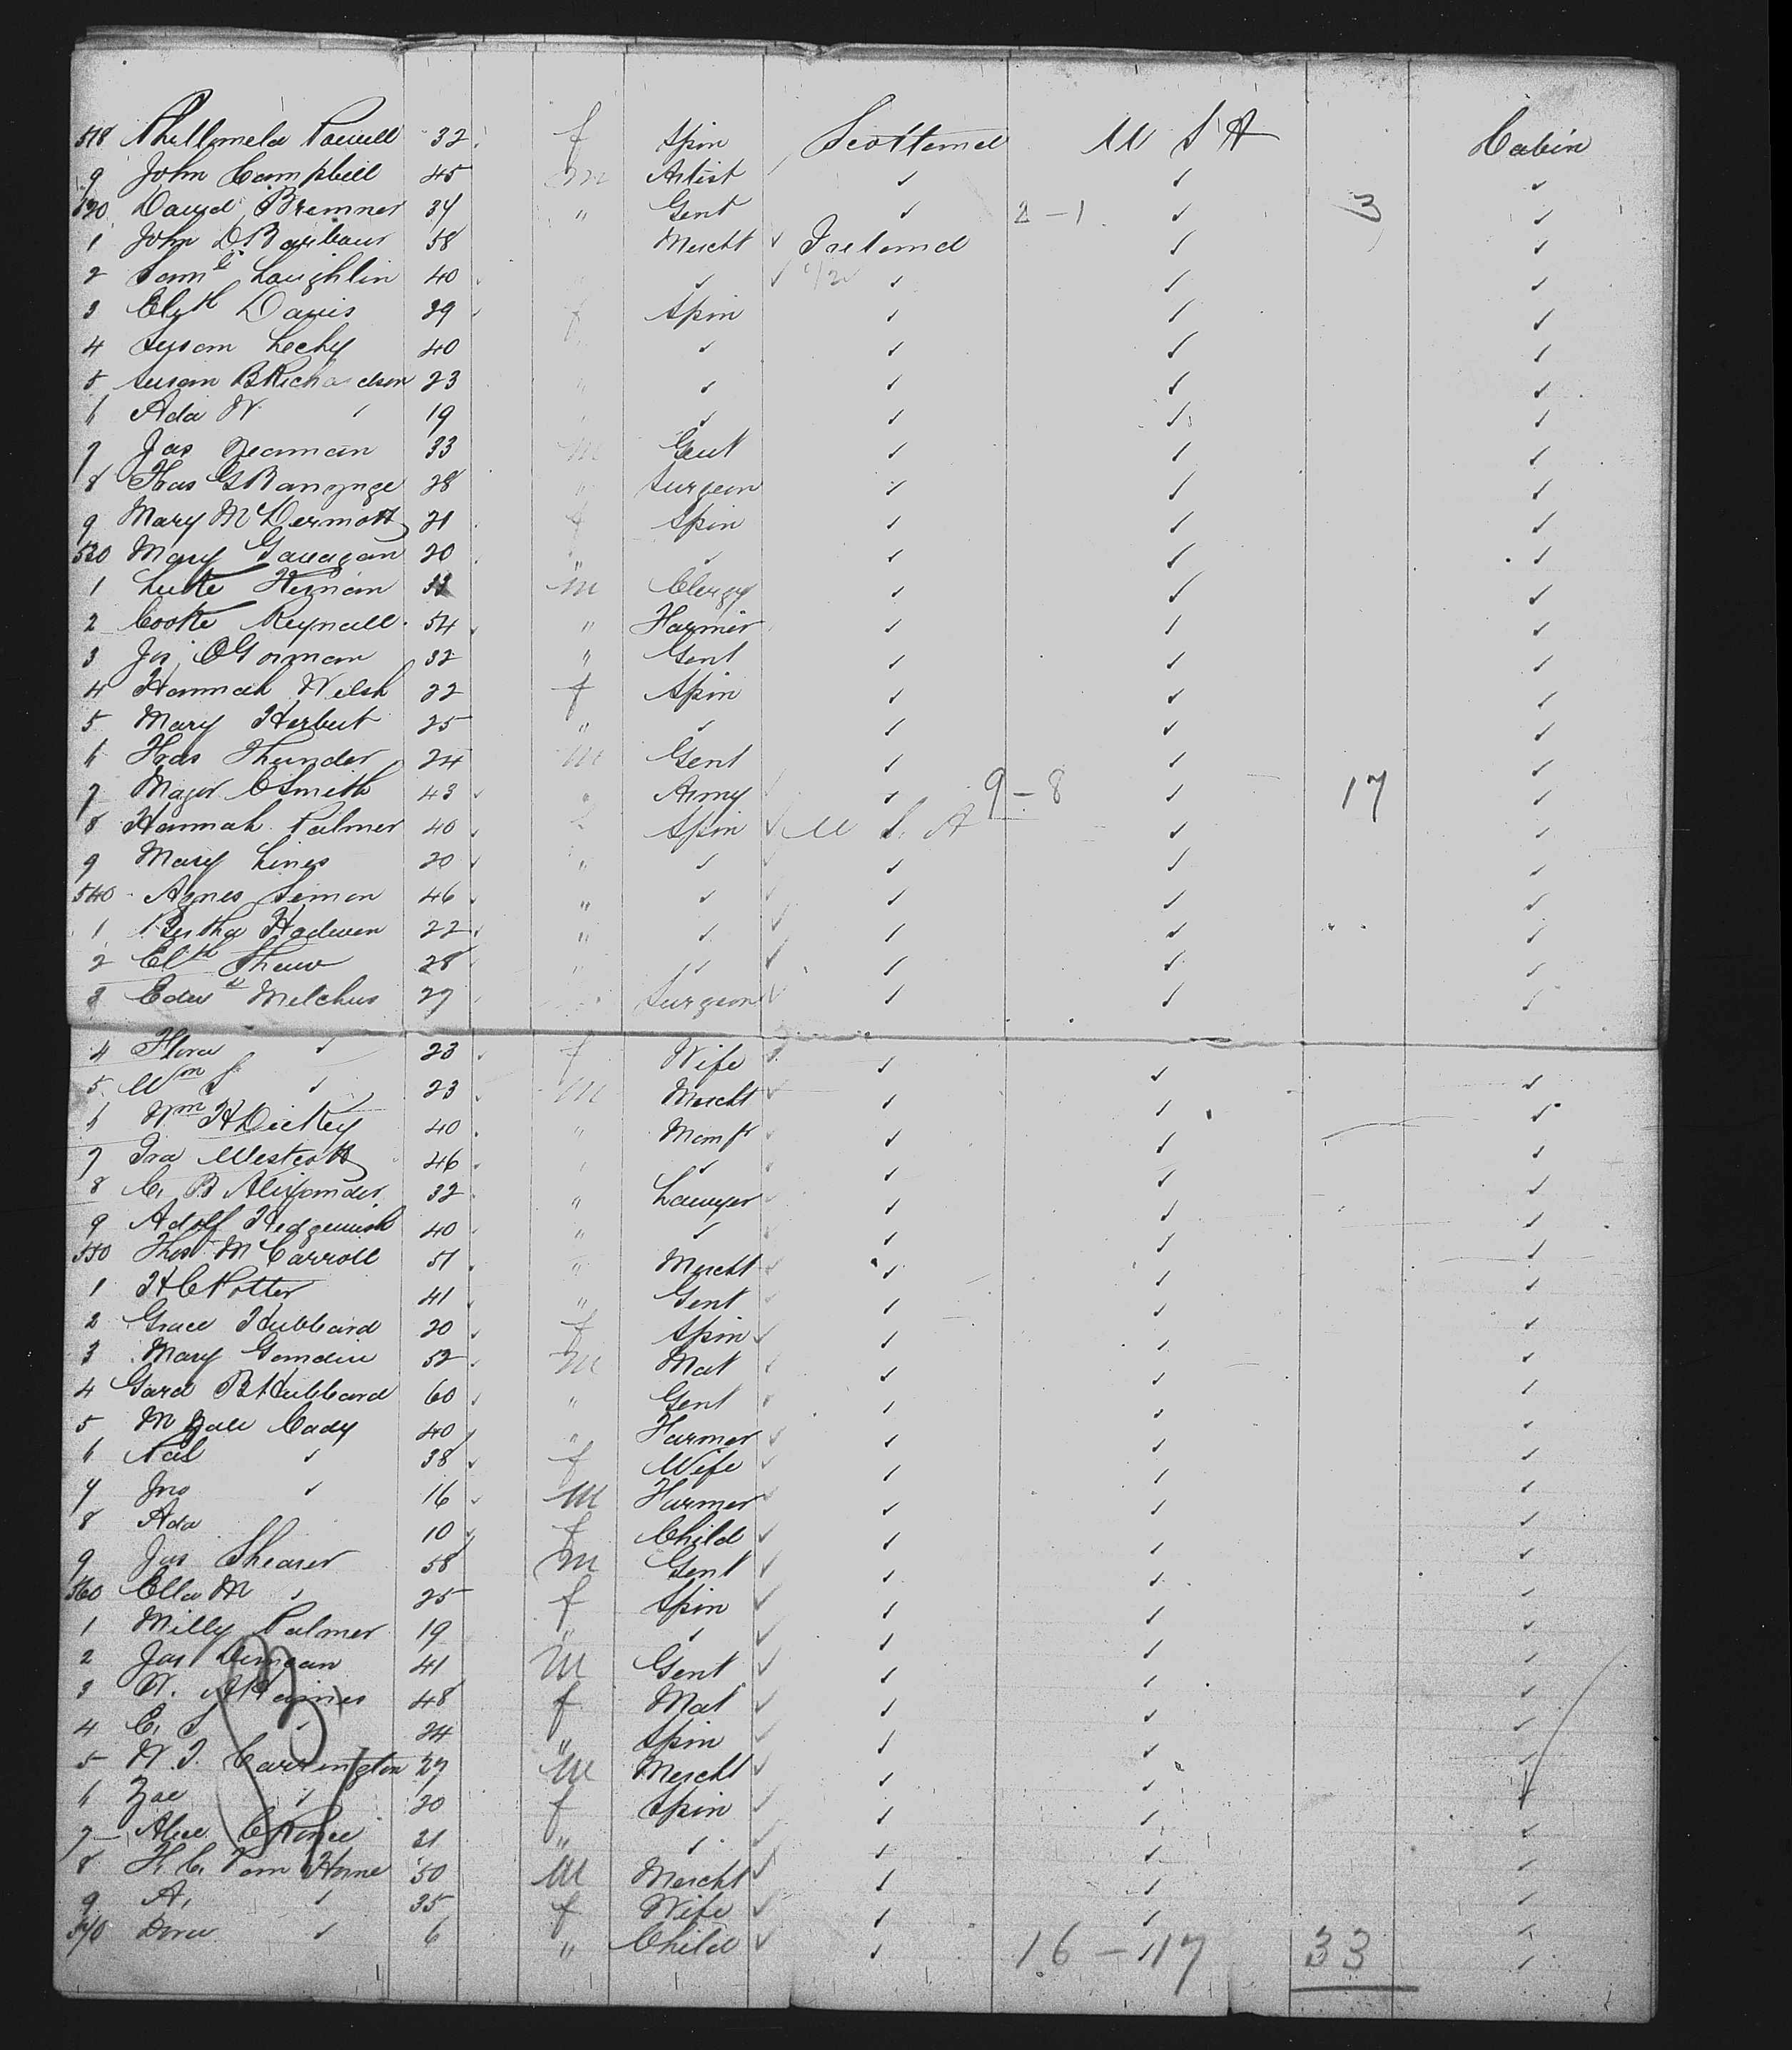 518 Phillomela Powell 32 f Spin Scotland U S A Cabin
9 John Campbell 45 m Artist ✓ ✓ ✓
520 David Bremner 34 " Gent ✓ 2-1 ✓ 3 ✓
1 John D Barbour 58 Mercht ✓ Ireland ✓ ✓
2 Saml Laughlin 40 ✓ ✓ ✓ ✓ ✓
3 Elzth Davis 29 f Spin ✓ ✓ ✓
4 Susan Lecky 40 ✓ ✓ ✓ ✓
5 Susan B Richardson 23 " ✓ ✓ ✓ ✓
6 Ada W ✓ 19 ✓ ✓ ✓ ✓
7 Jas Yeaman 33 m Gent ✓ ✓ ✓
8 Thos G 28 " Surgeon ✓ ✓ ✓
9 Mary McDermott 21 f Spin ✓ ✓ ✓
530 Mary Gavagan 20 " ✓ ✓ ✓ ✓
1 Luke m Clergy ✓ ✓ ✓
2 Cooke Reynell 54 " Farmer ✓ ✓ ✓
3 Js O Gorman 32 " Gent ✓ ✓ ✓
4 Hannah Welsh 22 f Spin ✓ ✓ ✓
5 Mary Herbert 25 " ✓ ✓ ✓ ✓
6 Thos Thunder 24 m Gent ✓ ✓ ✓
7 Major C Smith 43 Army ✓ 9-8 ✓ 17 ✓
8 Hannah Palmer 40 Spin ✓ U S. A ✓ ✓
9 Mary Lines 20 " ✓ ✓ ✓ ✓ ✓
540 Agnes Simon 46 " ✓ ✓ ✓ ✓ ✓
1 Bertha Hadwen 22 " ✓ ✓ ✓ ✓ ✓
2 Elth Shaw 28 " ✓ ✓ ✓ ✓ ✓
3 Edwd Melchus 27 Surgeon ✓ ✓ ✓ ✓
4 Flora ✓ 23 f Wife ✓ ✓ ✓ ✓
5 Wm S ✓ 23 m Mercht ✓ ✓ ✓ ✓
6 Wm H Dickey 40 " Manfr ✓ ✓ ✓ ✓
7 Ira Westcott 46 ✓ ✓ ✓ ✓ ✓
8 C. B Alixander 32 " Lawyer ✓ ✓ ✓ ✓
9 Adolf 40 " ✓ ✓ ✓ ✓
550 Thos McCarroll 51 " Mercht ✓ ✓ ✓ ✓
1 H C Potter 41 " Gent ✓ ✓ ✓ ✓
2 Grace Hubbard 20 f Spin ✓ ✓ ✓ ✓
3 Mary 52 m Mat ✓ ✓ ✓ ✓
4 Gard B Hubbard 60 " Gent ✓ ✓ ✓ ✓
5 M Yale Cady 40 " Farmer ✓ ✓ ✓ ✓
6 ✓ 38 f Wife ✓ ✓ ✓ ✓
7 Jno ✓ 16 m Farmer ✓ ✓ ✓ ✓
8 Ada 10 f Child ✓ ✓ ✓ ✓
9 Jas Shearer 58 m Gent ✓ ✓ ✓ ✓
560 Ella M ✓ 25 f Spin ✓ ✓ ✓ ✓
1 Milly Palmer 19 " ✓ ✓ ✓ ✓ ✓
2 Jas Duncan 41 m Gent ✓ ✓ ✓ ✓
3 W. Haines 48 f Mat ✓ ✓ ✓ ✓
4 C. S ✓ 24 " Spin ✓ ✓ ✓ ✓
5 W. T. Carrington 27 m Mercht ✓ ✓ ✓ ✓
6 Zoe ✓ 20 f Spin ✓ ✓ ✓ ✓
7 Alice 31 " ✓ ✓ ✓ ✓ ✓
8 H. C. Van Horne 50 m Mercht ✓ ✓ ✓ ✓
9 A. ✓ 35 f Wife ✓ ✓ ✓ ✓
570 Dora ✓ 6 " Child ✓ ✓ 16-17 33 ✓